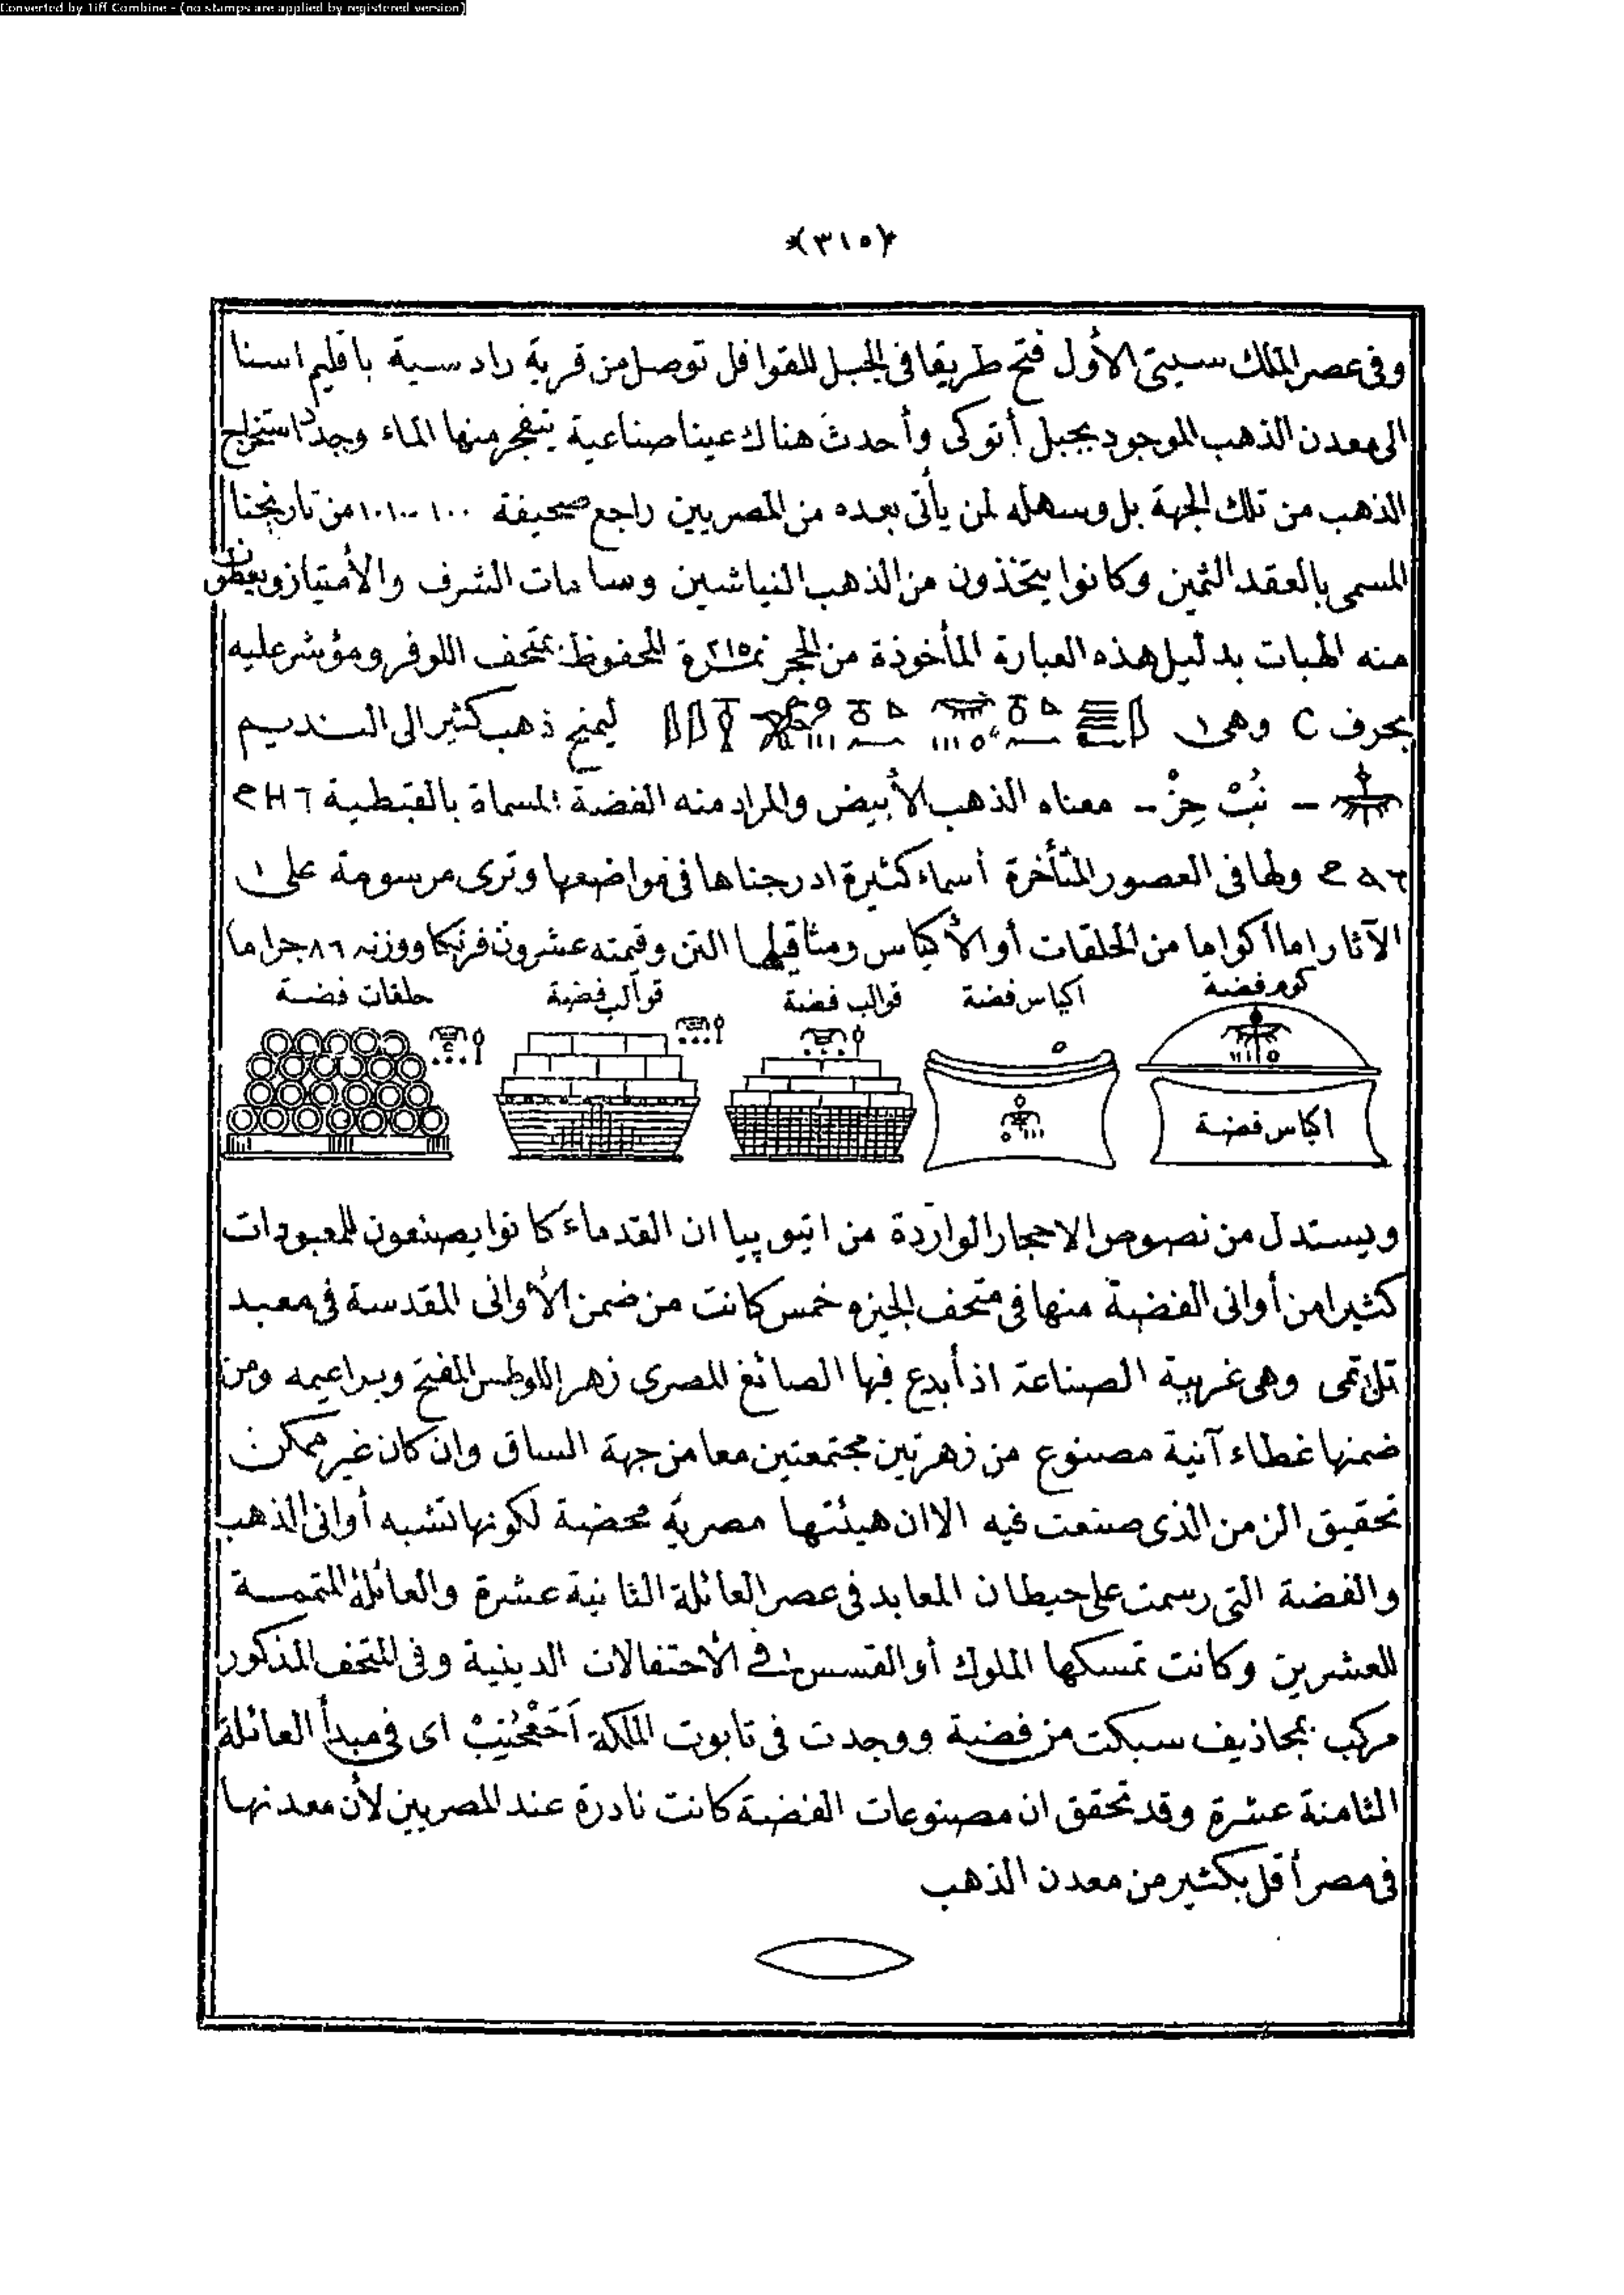 Converted by Tiff Combine - (no stamps are applied by registered version)
*(٣١٥)*
وفى عصر الملك سيتى الأول فتح طريقا فى الجبل للقوافل توصل من قرية رادسية باقليم اسنا
الى معدن الذهب الموجود بجبل أتوكى وأحدث هناك عينا صناعية ينفجر منها الماء وجد استخراج
الذهب من تلك الجهة بل وسهله لمن يأتى بعده من المصريين راجع صحيفة ١٠٠-١٠١ من تاريخنا
المسمى بالعقد الثمين وكانوا يتخذون من الذهب النياشين وسامات الشرف والأمتياز ويعطون
منه الهبات بدليل هذه العبارة المأخوذة من الحجر نمرة ٢١٥ المحفوظ بمتحف اللوفر ومؤشر عليه
بحرف C وهى ليمنح ذهب كثير الى النديم
— نُبْ حِزْ - معناه الذهب الأبيض والمراد منه الفضة المسماة بالقبطية
ولها فى العصور المتأخرة أسماء كثيرة ادرجناها فى مواضعها وترى مرسومة على
الآثار اما أكواما من الحلقات أو الأكياس ومثاقيلها التن وقيمته عشرون فرنكا ووزنه ٨٦ جراما
كوم فضة
أكياس فضة
قوالب فضة
قوالب فضة
حلقات فضة
اكياس فضة
ويستدل من نصوص الاحجار الواردة من اتيوپيا ان القدماء كانوا يصنعون للمعبودات
كثيرا من أوانى الفضة منها فى متحف الجيزه خمس كانت من ضمن الأوانى المقدسة فى معبد
تل تمى وهى غريبة الصناعة اذ أبدع فيها الصائغ المصرى زهر اللوطس المفتح وبراعيمه ومن
ضمنها غطاء آنية مصنوع من زهرتين مجتمعتين معا من جهة الساق وان كان غير ممكن
تحقيق الزمن الذى صنعت فيه الا ان هيئتها مصرية محضة لكونها تشبه أوانى الذهب
والفضة التى رسمت على حيطان المعابد فى عصر العائلة الثانية عشرة والعائلة المتممة
للعشرين وكانت تمسكها الملوك أو القسس فى الأحتفالات الدينية وفى المتحف المذكور
مركب بمجاذيف سبكت من فضة ووجدت فى تابوت الملكة اى فى مبدأ العائلة
الثامنة عشرة وقد تحقق ان مصنوعات الفضة كانت نادرة عند المصريين لأن معدنها
فى مصر أقل بكثير من معدن الذهب